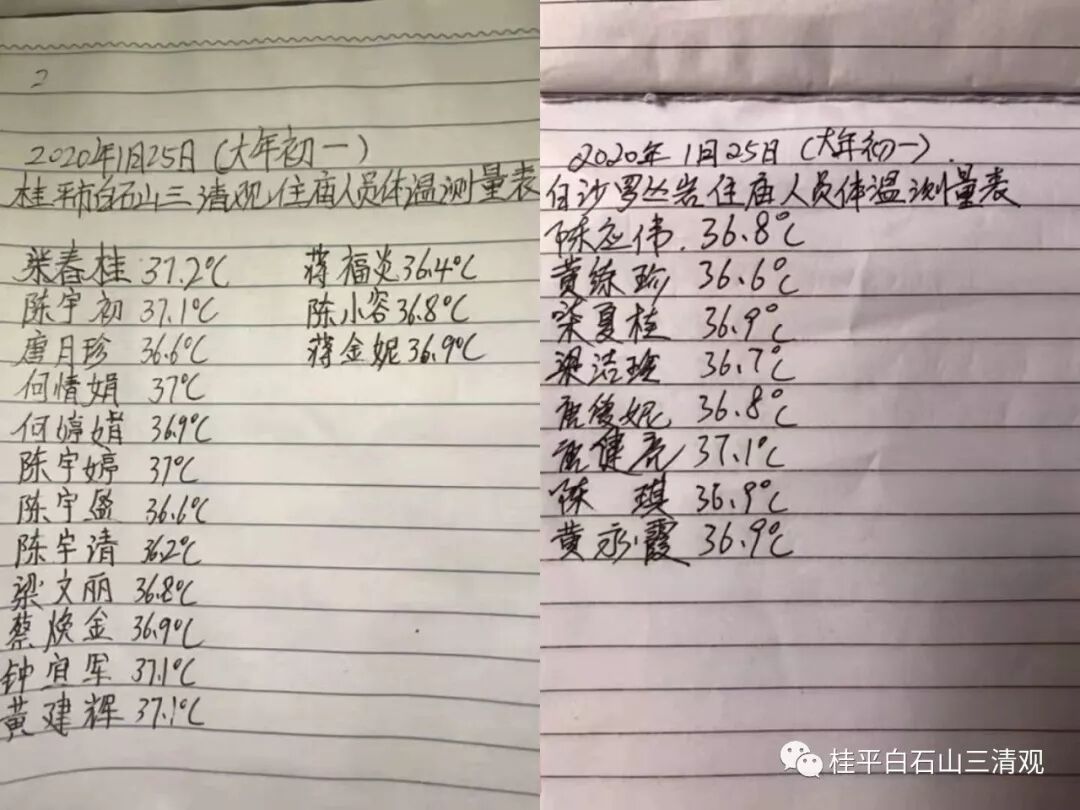 2
2020年1月25日（大年初一）
桂平市白石山三清观住庙人员体温测量表
梁春桂 37.2℃ 蒋福炎 36.4℃
陈宇初 37.1℃ 陈小容 36.8℃
唐月珍 36.6℃ 蒋金妮 36.9℃
何情娟 37℃
何婷婧 36.9℃
陈宇婷 37℃
陈宇盈 36.6℃
陈宇清 36.2℃
梁文丽 36.8℃
蔡焕金 36.9℃
钟宜军 37.1℃
黄建辉 37.1℃
2020年1月25日（大年初一）.
白沙罗丛岩住庙人员体温测量表
陈应伟. 36.8℃
黄练珍 36.6℃
梁夏桂 36.9℃
梁洁 36.7℃
唐俊妮 36.8℃
唐健亮 37.1℃
陈 琪 36.9℃
黄永霞 36.9℃
桂平白石山三清观